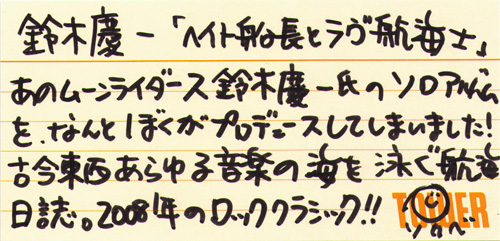 鈴木慶一「ヘイト船長とラヴ航海士」
あのムーンライダース鈴木慶一氏のソロアルバム
を、なんとぼくがプロデュースしてしまいました!
古今東西あらゆる音楽の海を泳ぐ航海
日誌。2008年のロッククラシック!!
TOWER
ソカベ